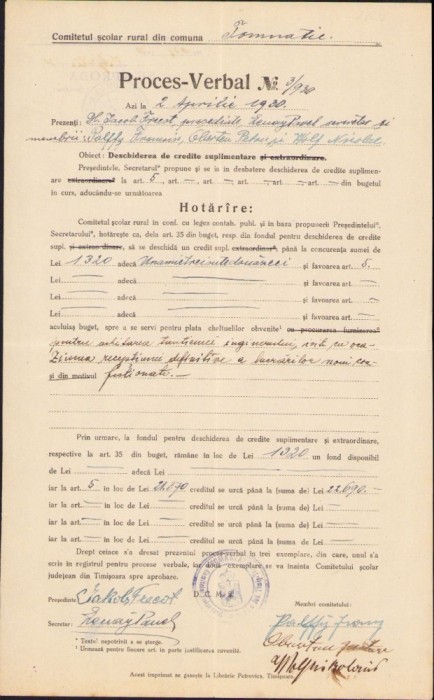 Comitetul școlar rural din comuna Tomnatic.
Proces-Verbal No. 3/930
Azi la 2 Aprilie 1930.
Prezenți: Dl. Jacob Frecot președinte, Lenay Pavel secretar și
membrii Palffy Francisc, Oberten Petru și Wolf Nicolae
Obiect: Deschiderea de credite suplimentare și extraordinare.
Președintele, Secretarul* propune și se is in desbatere deschiderea de credite suplimen-
tare extraordinare* la art. 5, art. —, art. —, art. —, art. — din bugetul
în curs, aducându-se următoarea
Hotărîre:
Comitetul școlar rural în conf. cu legea contab. publ. și în baza propunerii Președintelui*,
Secretarului*, hotărește ca, dela art. 35 din buget, resp. din fondul pentru deschiderea de credite
supl. și extraordinare, să se deschidă un credit supl. extraordinar*, până la concurența sumei de
Lei 1320 adecă Unamietreisutedouăzeci și favoarea art. 5.
Lei — adecă — și favoarea art. —
Lei — adecă — și favoarea art. —
Lei — adecă — și favoarea art. —
aceluiaș buget, spre a se servi pentru plata cheltuelilor obvenite¹ cu procurarea furnizarea*
pentru achitarea tantiemei inginerului, ivită cu oca-
ziunea recepțiunei definitive a lucrărilor
și din motivul
Prin urmare, la fondul pentru deschiderea de credite suplimentare și extraordinare,
respective la art. 35 din buget, rămâne în loc de Lei 1320 un fond disponibil
de Lei — adecă Lei —
iar la art. 5 în loc de Lei 21.070 creditul se urcă până la (suma de) Lei 22.690.—
iar la art. — în loc de Lei — creditul se urcă până la (suma de) Lei —
iar la art. — în loc de Lei — creditul se urcă până la (suma de) Lei —
iar la art. — în loc de Lei — creditul se urcă până la (suma de) Lei —
Drept ceice s'a dresat prezentul proces-verbal în trei exemplare, din care, unul s'a
scris în registrul pentru procese verbale, iar două exemplare se va înainta Comitetului școlar
județean din Timișoara spre aprobare.
D. C. M. S.
Președinte: Jakob Frecot
Membri comitetului:
Palffy Franz
Secretar: Lenay Pavel
Oberten
* Textul nepotrivit a se șterge.
¹ Urmează pentru fiecare art. în parte justificarea cuvenită.
Wolf Nikolaus
Acest imprimat se gasește la Librărie Petrovics, Timișoara.